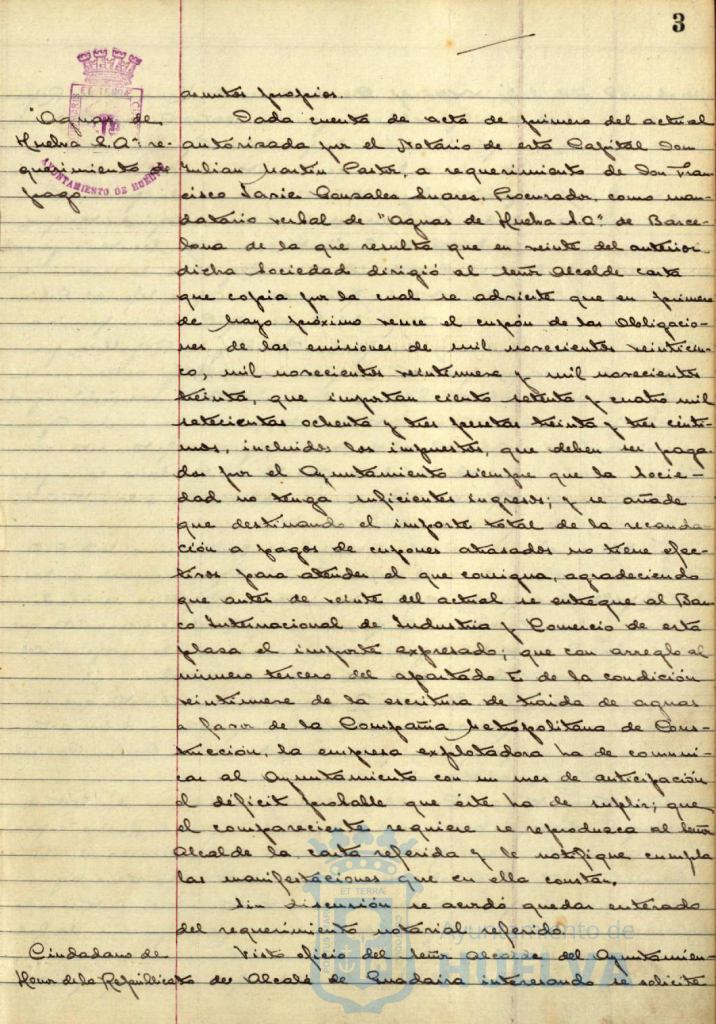 3
asuntos propios.
"Aguas de
Huelva S.A." re-
querimiento de
pago.
AYUNTAMIENTO DE HUELVA
Dada cuenta de acta de primero del actual
autorizada por el Notario de esta Capital Don
Julian Martin Pastor, a requerimiento de Don Fran
cisco Javier Gonzales Suares, Procurador, como man-
datario verbal de "Aguas de Huelva S.A" de Barce-
lona de la que resulta que en veinte del anterior
dicha Sociedad dirigió al Señor Alcalde carta
que copia por la cual se advierte que en primero
de Mayo próximo vence el cupón de las Obligacio-
nes de las emisiones de mil novecientos veinticin-
co, mil novecientos veintinueve y mil novecientos
treinta, que importan ciento setenta y cuatro mil
setecientas ochenta y tres pesetas treinta y tres cénti-
mos, incluidos los impuestos, que deben ser paga-
dos por el Ayuntamiento siempre que la Socie-
dad no tenga suficientes ingresos; y se añade
que destinando el importe total de la recauda-
ción a pagos de cupones atrasados no tiene efec-
tivos para atender el que consigna, agradeciendo
que antes de veinte del actual se entregue al Ban
co Internacional de Industria y Comercio de esta
plasa el importe expresado; que con arreglo al
número tercero del apartado E de la condición
veintinueve de la escritura de traida de aguas
a favor de la Compañia Metropolitana de Cons-
trucción, la empresa explotadora ha de comuni-
car al Ayuntamiento con un mes de anticipación
el déficit probable que éste ha de suplir; que
el compareciente requiere se reproduzca al Señor
Alcalde la carta referida y le notifique cumpla
las manifestaciones que en ella constan.
Sin discusión se acordó quedar enterado
del requerimiento notarial referido.
Ciudadano de
Honor de la República
Visto oficio del Señor Alcalde del Ayuntamien-
to de Alcalá de Guadaira interesando se solicite
Ayuntamiento de
HUELVA